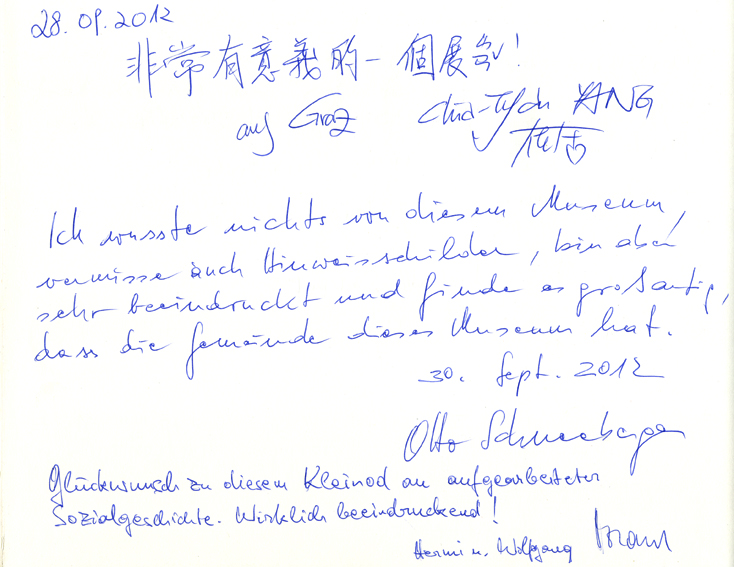 28.09.2012
非常有意義的一個展覽!
auf Graz Chia-Tyan YANG
Ich wusste nichts von diesem Museum,
vermisse auch Hinweisschilder, bin aber
sehr beeindruckt und finde es großartig,
dass die Gemeinde dieses Museum hat.
30. Sept. 2012
Otto Schneeberger
Glückwunsch zu diesem Kleinod an aufgearbeiteter
Sozialgeschichte. Wirklich beeindruckend!
Hermi u. Wolfgang